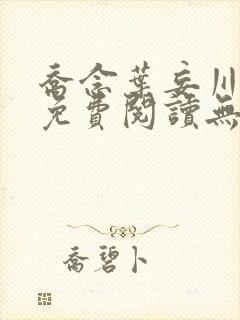 喬念葉妄川
免費閱讀無
喬碧卜